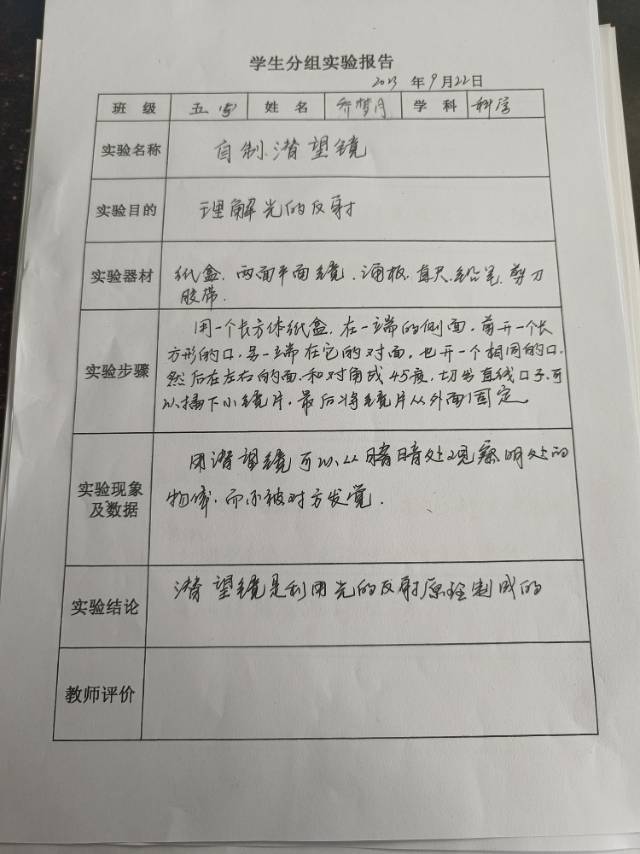 学生分组实验报告
2023 年 9 月 22 日
班 级 五(5) 姓 名 乔梦月 学 科 科学
实验名称 自制潜望镜
实验目的 理解光的反射
实验器材 纸盒、两面平面镜、涌板、直尺、铅笔、剪刀
胶带.
用一个长方体纸盒,在一端的侧面,剪开一个长
方形的口,另一端在它的对面,也开一个相同的口.
实验步骤 然后在左右的面,和对角成45度,切出直线口子,可
以插下小镜片,最后将镜片从外面固定。
用潜望镜可以从暗处观察明处的
实验现象 物体,而不被对方发觉.
及数据
实验结论 潜望镜是利用光的反射原理制成的
教师评价